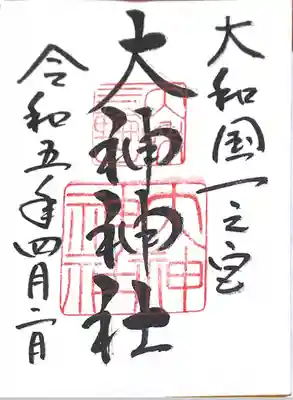 大和国一之宮
大神神社
令和五年四月二日